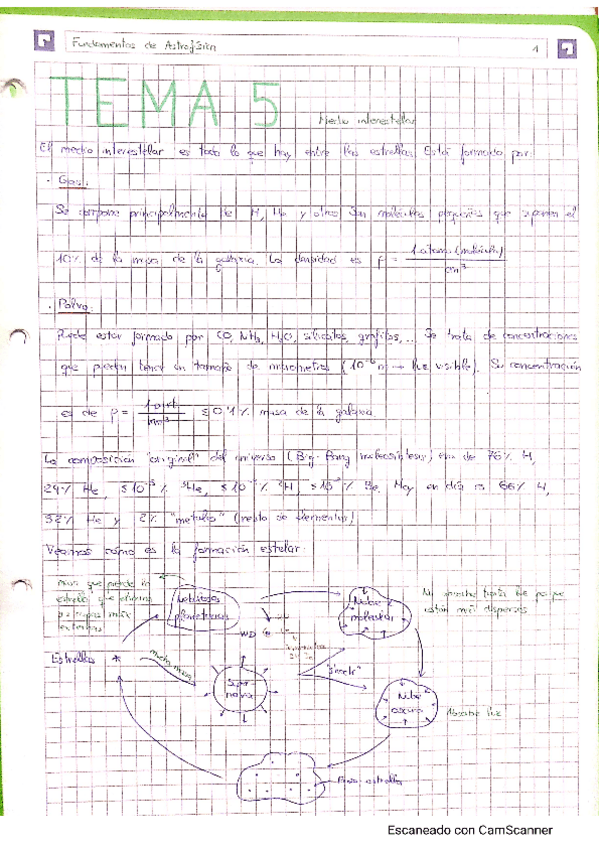 Fundamentos de Astrofísica 1
TEMA 5 Medio interestelar
El medio interestelar es todo lo que hay entre las estrellas. Está formado por:
· Gas:
Se compone principalmente de H, He y otros. Son moléculas pequeñas que suponen el
10% de la masa de la galaxia. La densidad es ρ = 1 átomo (molécula) / cm³
· Polvo:
Puede estar formado por CO, NH₃, H₂O, silicatos, grafitos,... Se trata de concentraciones
que pueden tener un tamaño de micrómetros (10⁻⁶ m → luz visible). Su concentración
es de ρ = ≤ 0'1% masa de la galaxia
La composición "original" del universo (Big-Bang nucleosíntesis) era de 76% H,
24% He, Hoy en día es 66% H,
32% He y 2% "metales" (resto de elementos)
Veamos cómo es la formación estelar:
Masa que pierde la
estrella que elimina
más
externas
Nebulosas
planetarias
WD
Nube
molecular
No absorbe tanta luz porque
están muy dispersos
Estrellas *
mucha masa
Super
nova
"
Nube
oscura
Absorbe luz
estrella
Escaneado con CamScanner